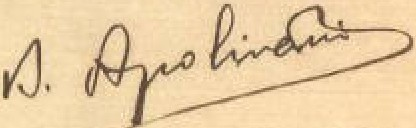 A. Apolinário